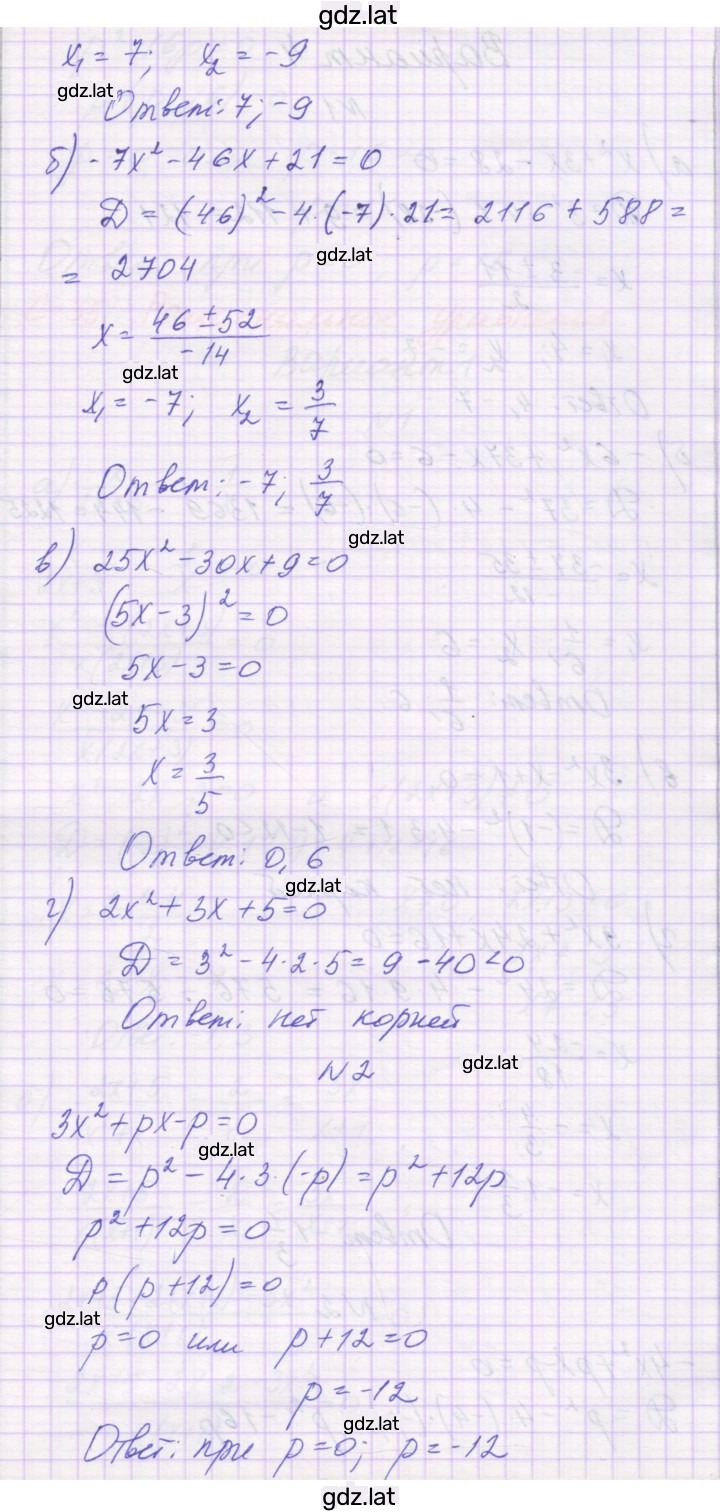 gdz.lat
x₁ = 7; x₂ = -9
gdz.lat
Ответ: 7; -9
б) -7x² - 46x + 21 = 0
Д = (-46)² - 4·(-7)·21 = 2116 + 588 =
gdz.lat
= 2704
x = (46 ± 52)/(-14)
gdz.lat
x₁ = -7; x₂ = 3/7
Ответ: -7; 3/7
gdz.lat
в) 25x² - 30x + 9 = 0
(5x - 3)² = 0
5x - 3 = 0
gdz.lat
5x = 3
x = 3/5
Ответ: 0,6
gdz.lat
г) 2x² + 3x + 5 = 0
Д = 3² - 4·2·5 = 9 - 40 < 0
Ответ: нет корней
N2
gdz.lat
3x² + px - p = 0
gdz.lat
Д = p² - 4·3·(-p) = p² + 12p
p² + 12p = 0
p(p + 12) = 0
gdz.lat
p = 0 или p + 12 = 0
p = -12
gdz.lat
Ответ: при p = 0; p = -12
gdz.lat